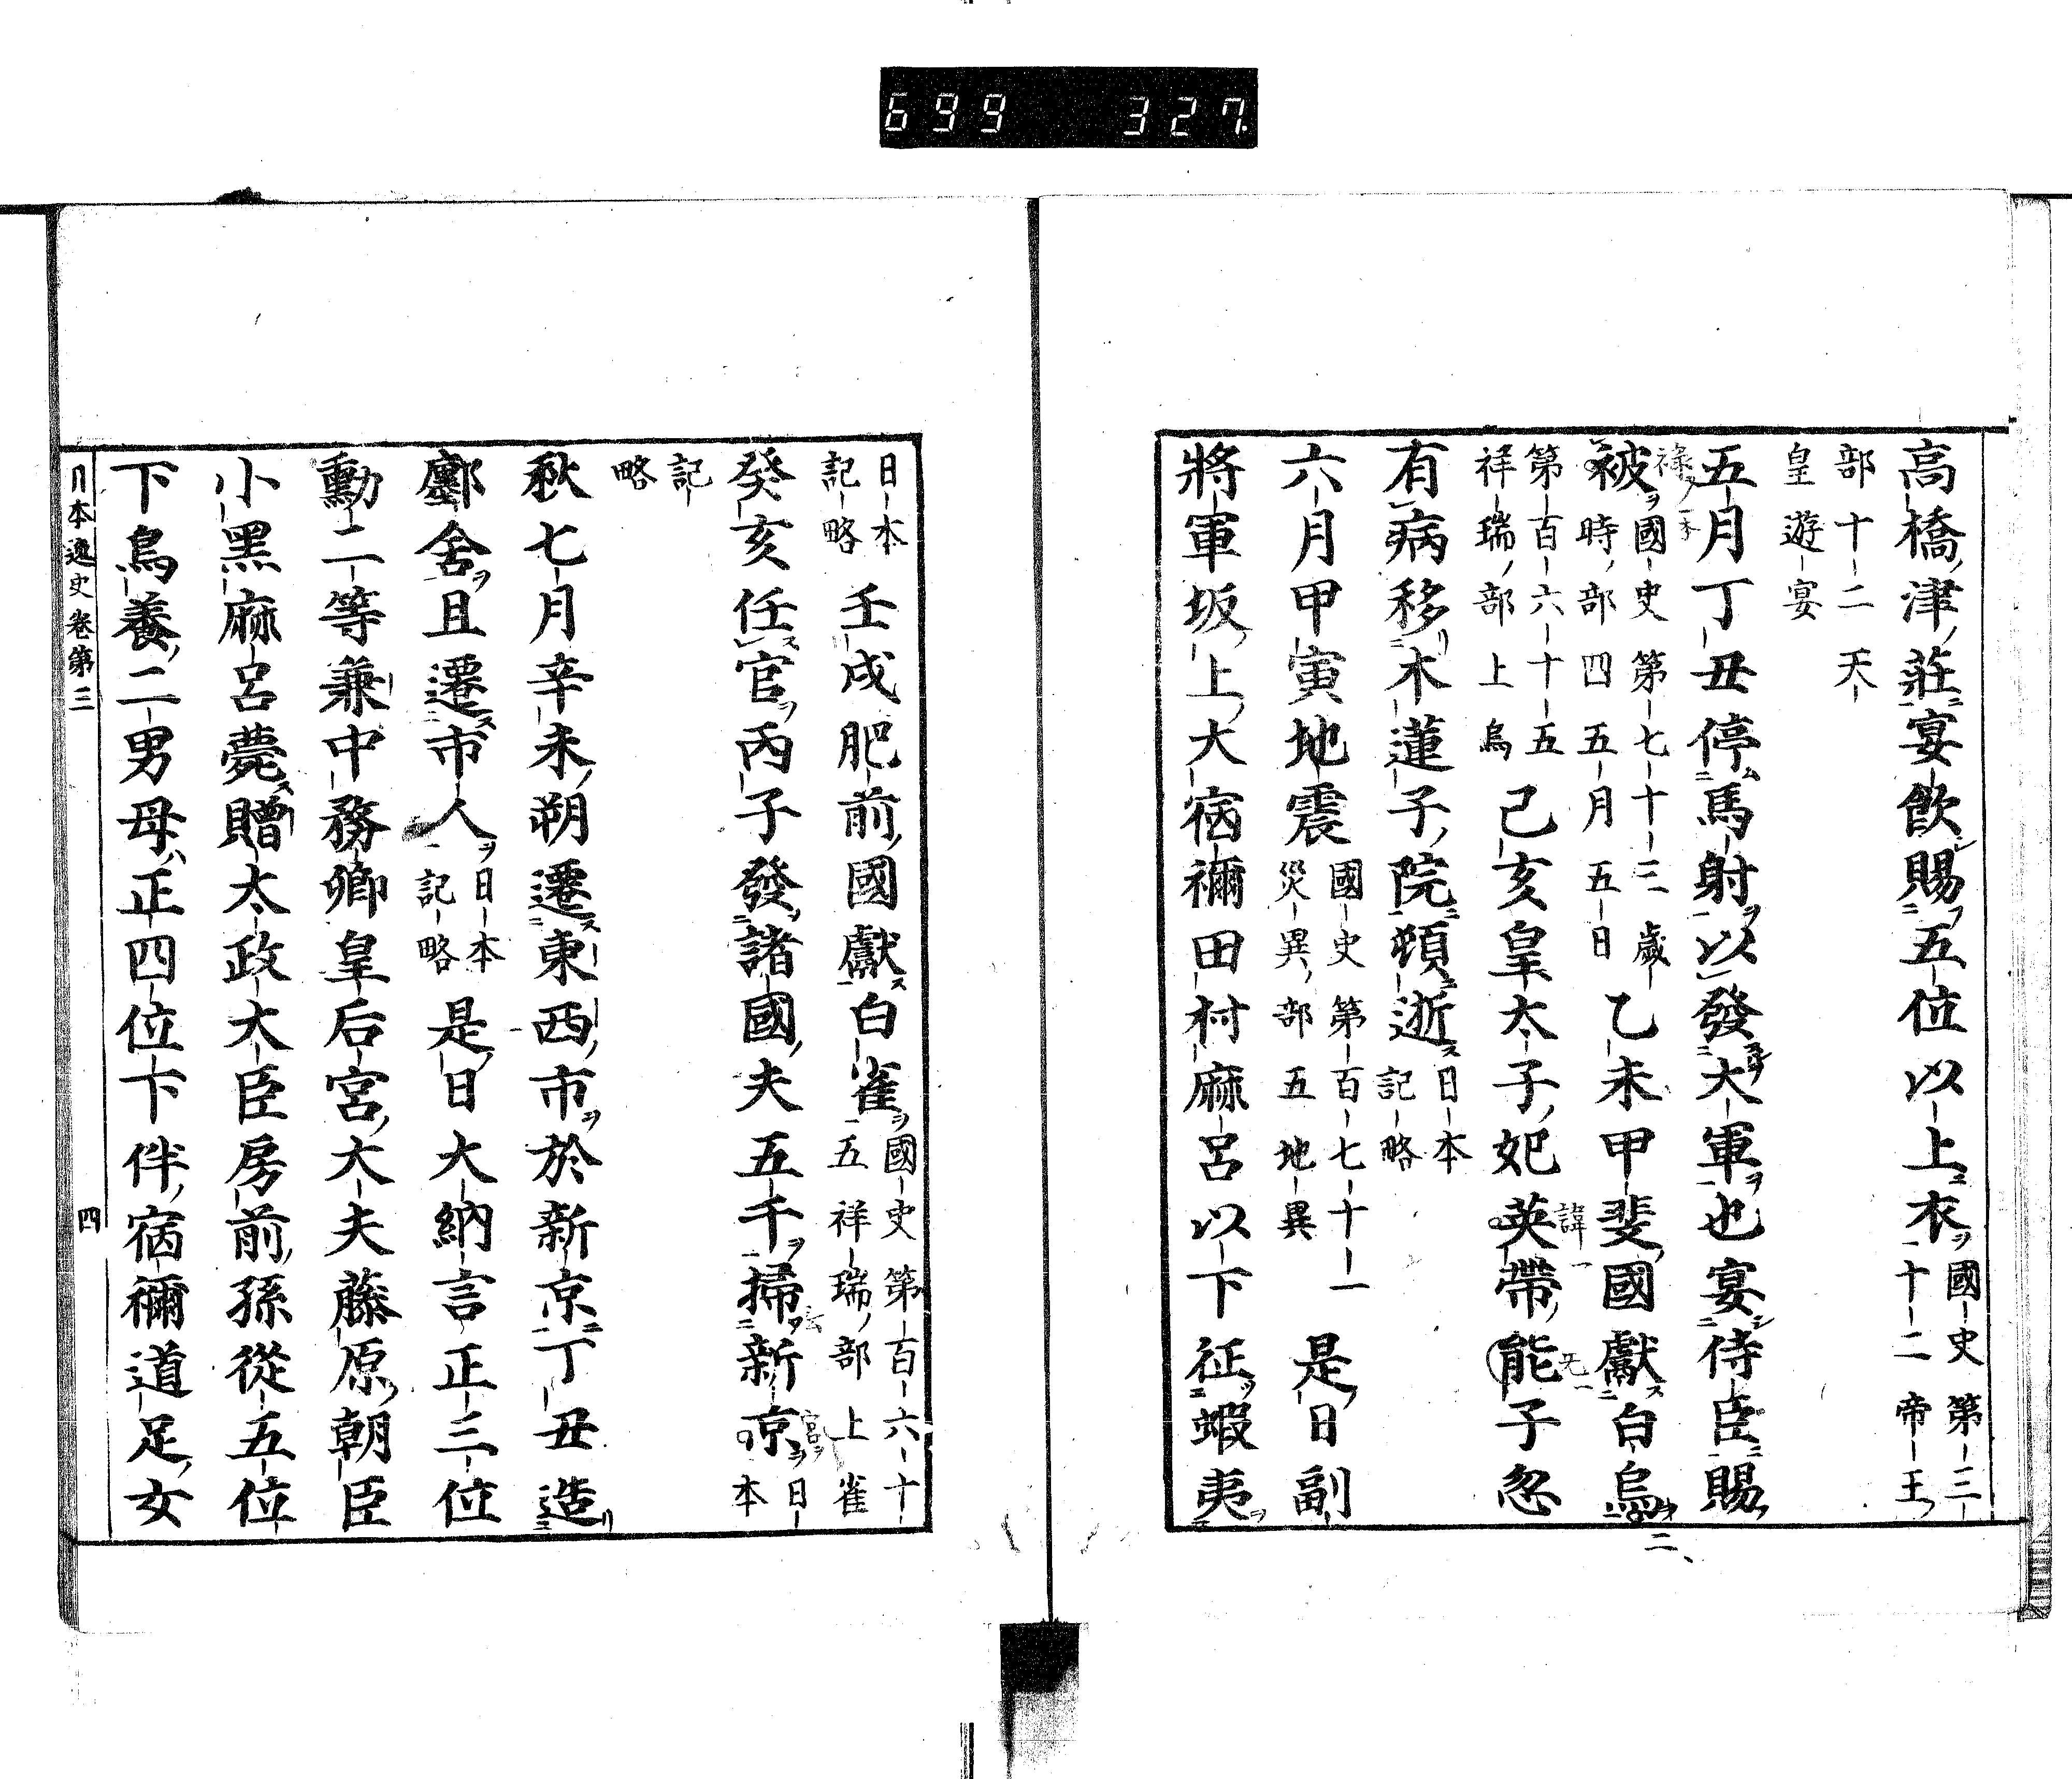 699 327
高橋津莊宴飲賜五位以上衣國史第三十二帝王
部十二天皇遊宴
五月丁丑停馬射以發大軍也宴侍臣賜
被國史第七十三歲時部四五月五日乙未甲斐國獻白烏
第百六十五祥瑞部上烏己亥皇太子妃英帶能子忽
有病移木蓮子院頓逝日本記略
六月甲寅地震國史第百七十一災異部五地異是日副
將軍坂上大宿禰田村麻呂以下征蝦夷
日本記略壬戌肥前國獻白雀國史第百六十五祥瑞部上雀
癸亥任官丙子發諸國夫五千掃新京日本
記略
秋七月辛未朔遷東西市於新京丁丑造
鄽舍且遷市人日本記略是日大納言正三位
勳二等兼中務卿皇后宮大夫藤原朝臣
小黑麻呂薨贈太政大臣房前孫從五位
下鳥養二男母正四位下伴宿禰道足女
日本逸史卷第三 四